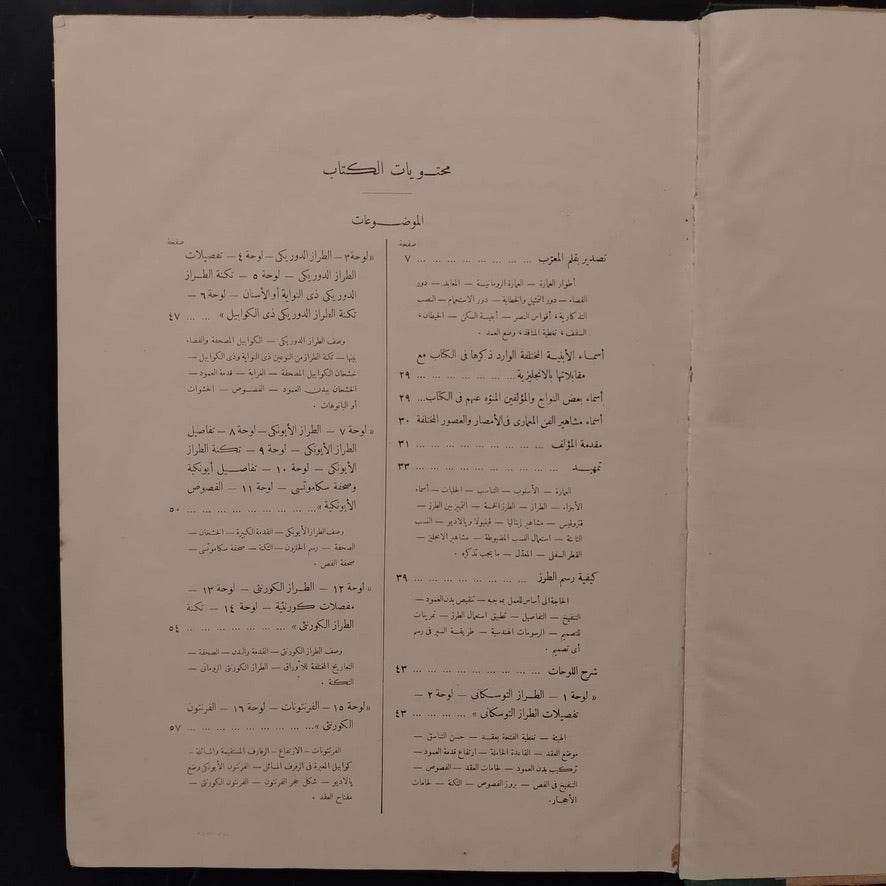 محتويات الكتاب
الموضوعات
صفحة
تصدير بقلم المعرّب ... ... ... ... ... ... ... ٧
أطوار العمارة — العمارة الرومانية — المعابد — دور
القضاء — دور التمثيل والخطابة — دور الاستحمام — النصب
التذكارية، أقواس النصر — أبنية السكن — الحيطان،
السقف، تغطية المنافذ، وضع العمد .
أسماء الأبنية المختلفة الوارد ذكرها فى الكتاب مع
مقابلاتها بالانجليزية ... ... ... ... ... ... ٢٩
أسماء بعض النوابغ والمؤلفين المنوّه عنهم فى الكتاب... ٢٩
أسماء مشاهير الفن المعمارى فى الأمصار والعصور المختلفة ٣٠
مقدمة المؤلف ... ... ... ... ... ... ... ... ٣١
تمهيد ... ... ... ... ... ... ... ... ... ٣٣
العمارة — الأسلوب — التناسب — الحليات — أسماء
الأجزاء — الطراز — الطرز الخمسة — التمييز بين الطرز —
فتروفيس — مشاهير إيتاليا — فينيولا وپالاديو — النسب
الثابتة — استعمال النسب المضبوطة — مشاهير الانجليز —
القطر السفلى — المعدّل — ما يجب تذكره .
كيفية رسم الطرز ... ... ... ... ... ... ... ٣٩
الحاجة الى أساس للعمل بموجبه — تنقيص بدن العمود —
التنفيخ — التفاصيل — تطبيق استعمال الطرز — تمرينات
للتصميم — الرسومات الهندسية — طريقة السير فى رسم
أى تصميم .
شرح اللوحات ... ... ... ... ... ... ... ... ٤٣
« لوحة ١ — الطراز التوسكانى — لوحة ٢ —
تفصيلات الطراز التوسكانى » ... ... ... ... ٤٣
الهيئة — تغطية الفتحة بعقد — حسن التناسق —
موضع العقد — القاعدة الحاملة — ارتفاع قدمة العمود —
تركيب بدن العمود — لحامات العقد — الفصوص —
التنفيخ فى الفص — بروز الفصوص — التكنة — لحامات
الأحجار.
صفحة
« لوحة ٣ — الطراز الدوريكى — لوحة ٤ — تفصيلات
الطراز الدوريكى — لوحة ٥ — تكنة الطراز
الدوريكى ذى النواية أو الأسنان — لوحة ٦ —
تكنة الطراز الدوريكى ذى الكوابيل » ... ... ٤٧
وصف الطراز الدوريكى — الكوابيل المصحفة والفضاء
بينها — تكنة الطراز من النوعين ذى النواية وذى الكوابيل —
خشخان الكوابيل المصحفة — — قدمة العمود —
الخشخان ببدن العمود — الفصوص — الحشوات
أو البانوهات .
« لوحة ٧ — الطراز الأيونكى — لوحة ٨ — تفاصيل
الطراز الأيونكى — لوحة ٩ — تكنة الطراز
الأيونكى — لوحة ١٠ — تفاصيل أيونكية
وصحفة سكاموتسى — لوحة ١١ — الفصوص
الأيونكية » ... ... ... ... ... ... ... ... ٥٠
وصف الطراز الأيونكى — القدمة الكبيرة — الخشخان —
الصحفة — رسم الحلزون — التكنة — صحفة سكاموتسى —
صحفة الفص .
« لوحة ١٢ — الطراز الكورنثى — لوحة ١٣ —
مفصلات كورنثية — لوحة ١٤ — تكنة
الطراز الكورنثى » ... ... ... ... ... ... ٥٤
وصف الطراز الكورنثى — القدمة والبدن — الصحفة —
التعاريج المختلفة للأوراق — الطراز الكورنثى الرومانى —
التكنة .
« لوحة ١٥ — الفرنتونات — لوحة ١٦ — الفرنتون
الكورنثى » ... ... ... ... ... ... ... ... ٥٧
الفرنتونات — الارتفاع — الرفارف المستقيمة والمائلة —
كوابيل المعبرة فى الرفرف المائل — الفرنتون الأيونكى وضع
پالاديو — شكل حجر الفرنتون — الفرنتون الكورنثى —
مفتاح العقد .